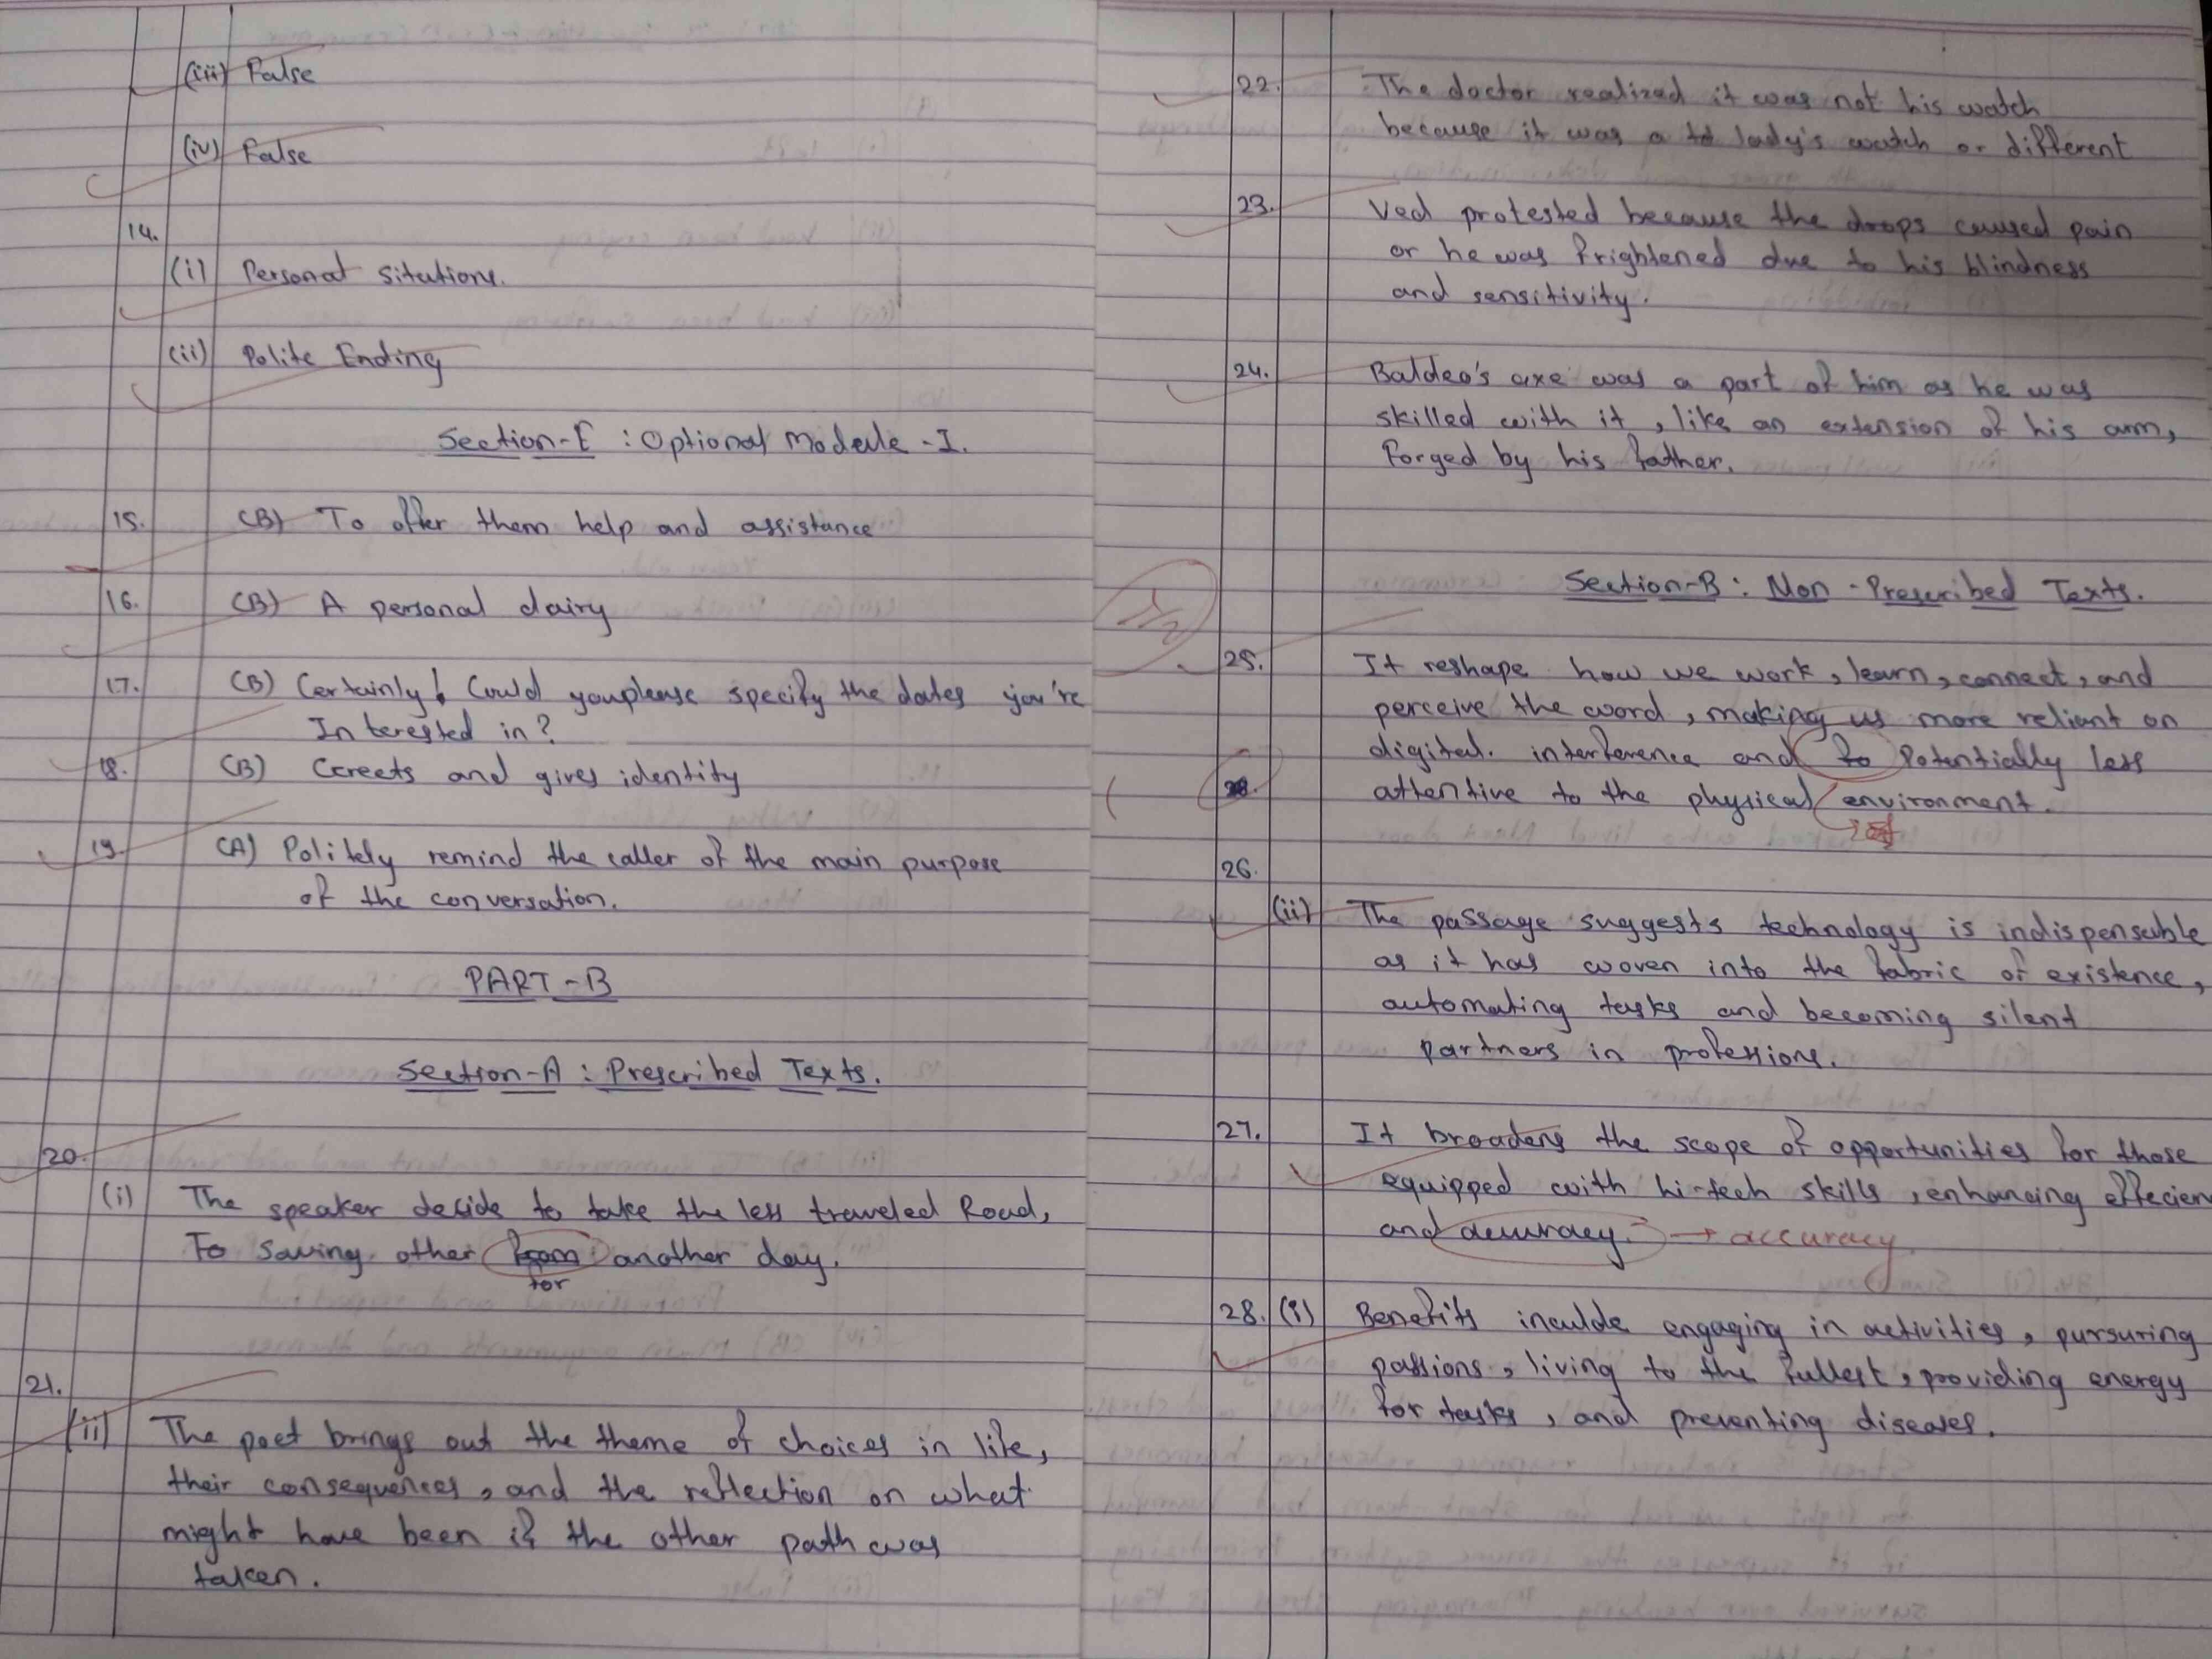 (iii) False
(iv) False
14.
(i) Personal Situtions.
(ii) Polite Ending
Section-E : Optional Module -I.
15. (B) To offer them help and assistance
16. (B) A personal dairy
17. (B) Certainly! Could youplease specify the dates you're
Interested in?
18. (B) Greets and gives identity
19. (A) Politely remind the caller of the main purpose
of the conversation.
PART-B
Section-A : Prescribed Texts.
20.
(i) The speaker decide to take the less traveled Road,
To saving other from another day.
for
21.
(ii) The poet brings out the theme of choices in life,
their consequences, and the reflection on what
might have been if the other path was
taken.
22. The doctor realized it was not his watch
because it was a lady's watch or different
23. Ved protested because the drops caused pain
or he was frightened due to his blindness
and sensitivity.
24. Baldeo's axe was a part of him as he was
skilled with it, like an extension of his arm,
forged by his father.
Section-B : Non-Prescribed Texts.
1/2
25. It reshape how we work, learn, connect, and
perceive the word, making us more reliant on
digital. interference and to Potentially less
attentive to the physical environment.
26.
(ii) The passage suggests technology is indispensable
as it has woven into the fabric of existence,
automating tasks and becoming silent
partners in professions.
27. It broadens the scope of opportunities for those
equipped with hi-tech skills, enhancing effecien
and accuracy. → accuracy
28. (i) Benefits inculde engaging in activities, pursuring
passions, living to the fullest, providing energy
for tasks, and preventing diseases.